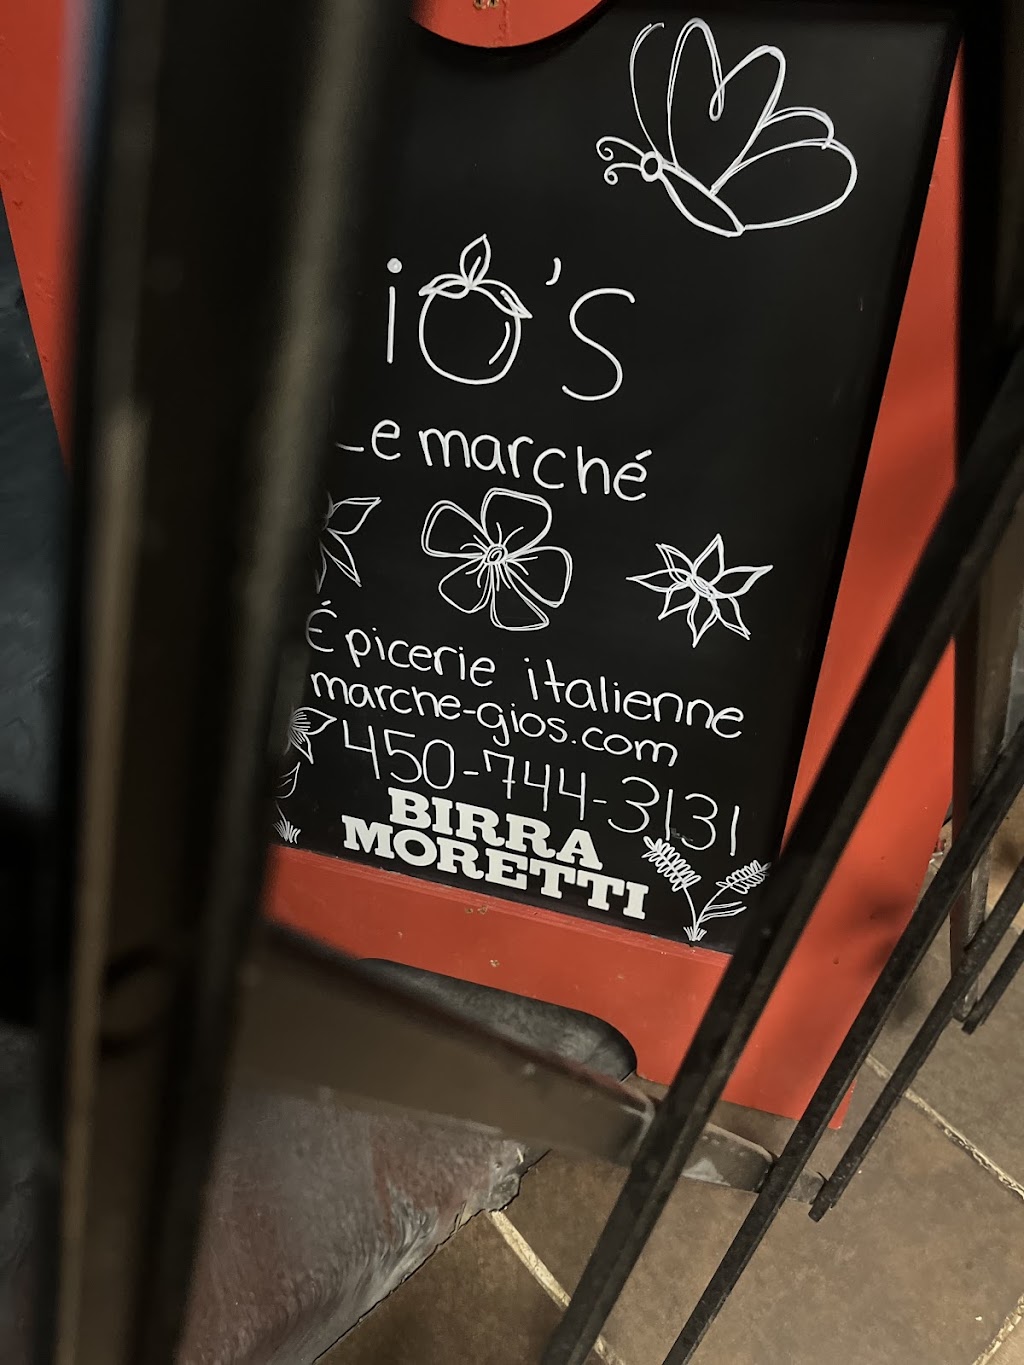 io's
Le marché
Épicerie italienne
marche-gios.com
450-744-3131
BIRRA
MORETTI